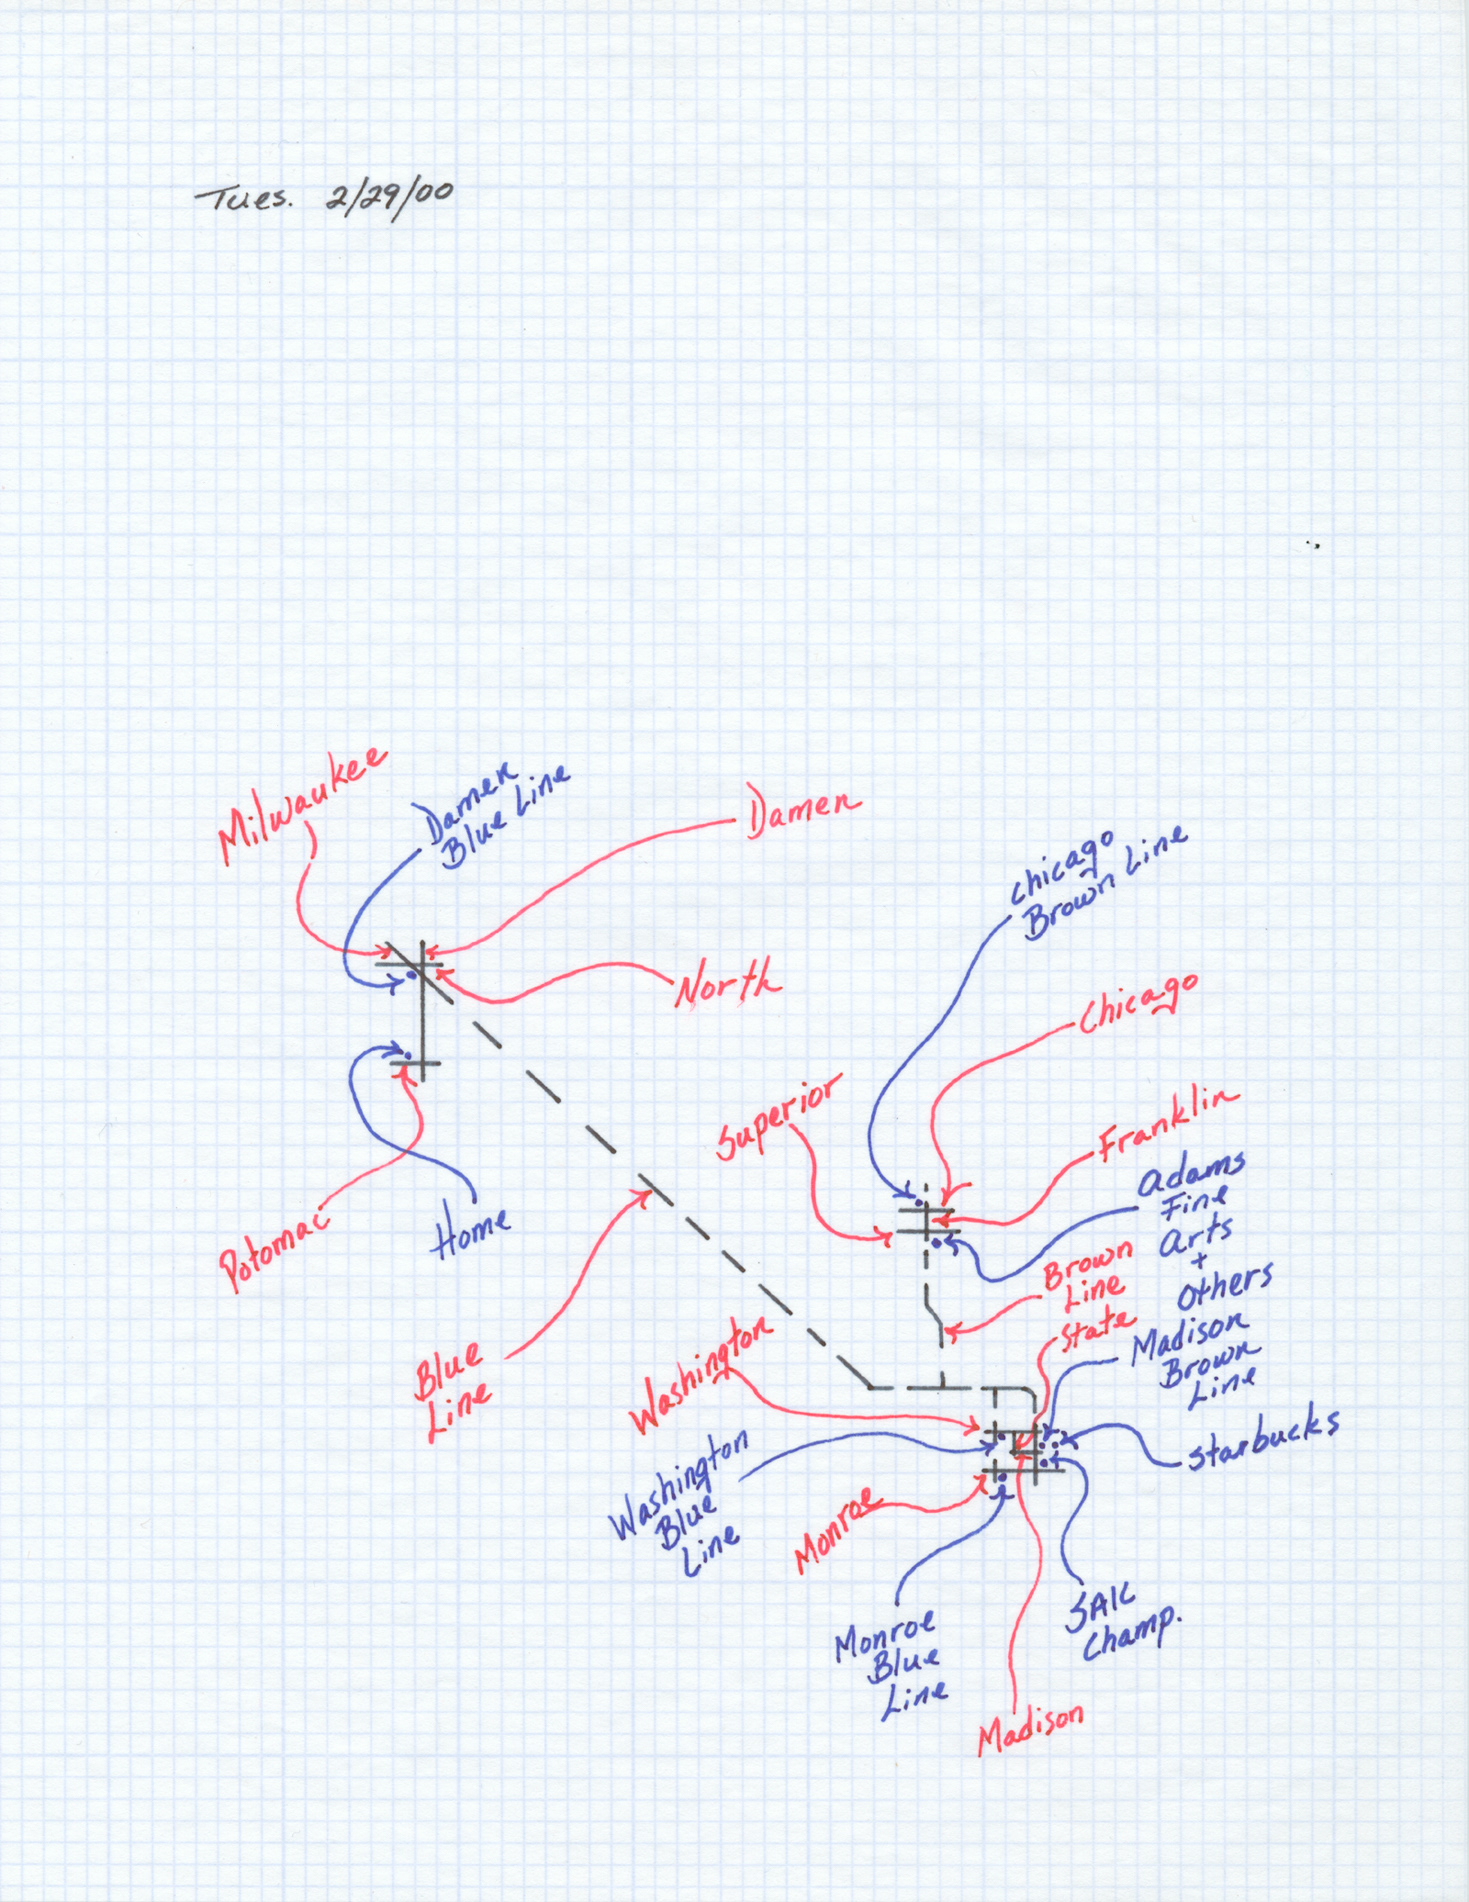 Tues. 2/29/00
Milwaukee
Damen
Blue Line
Damen
North
Chicago
Brown Line
Chicago
Superior
Franklin
Adams
Fine
Arts
+
Others
Potomac
Home
Brown
Line
State
Madison
Brown
Line
Blue
Line
Washington
Starbucks
Washington
Blue
Line
Monroe
SAIC
Champ.
Monroe
Blue
Line
Madison